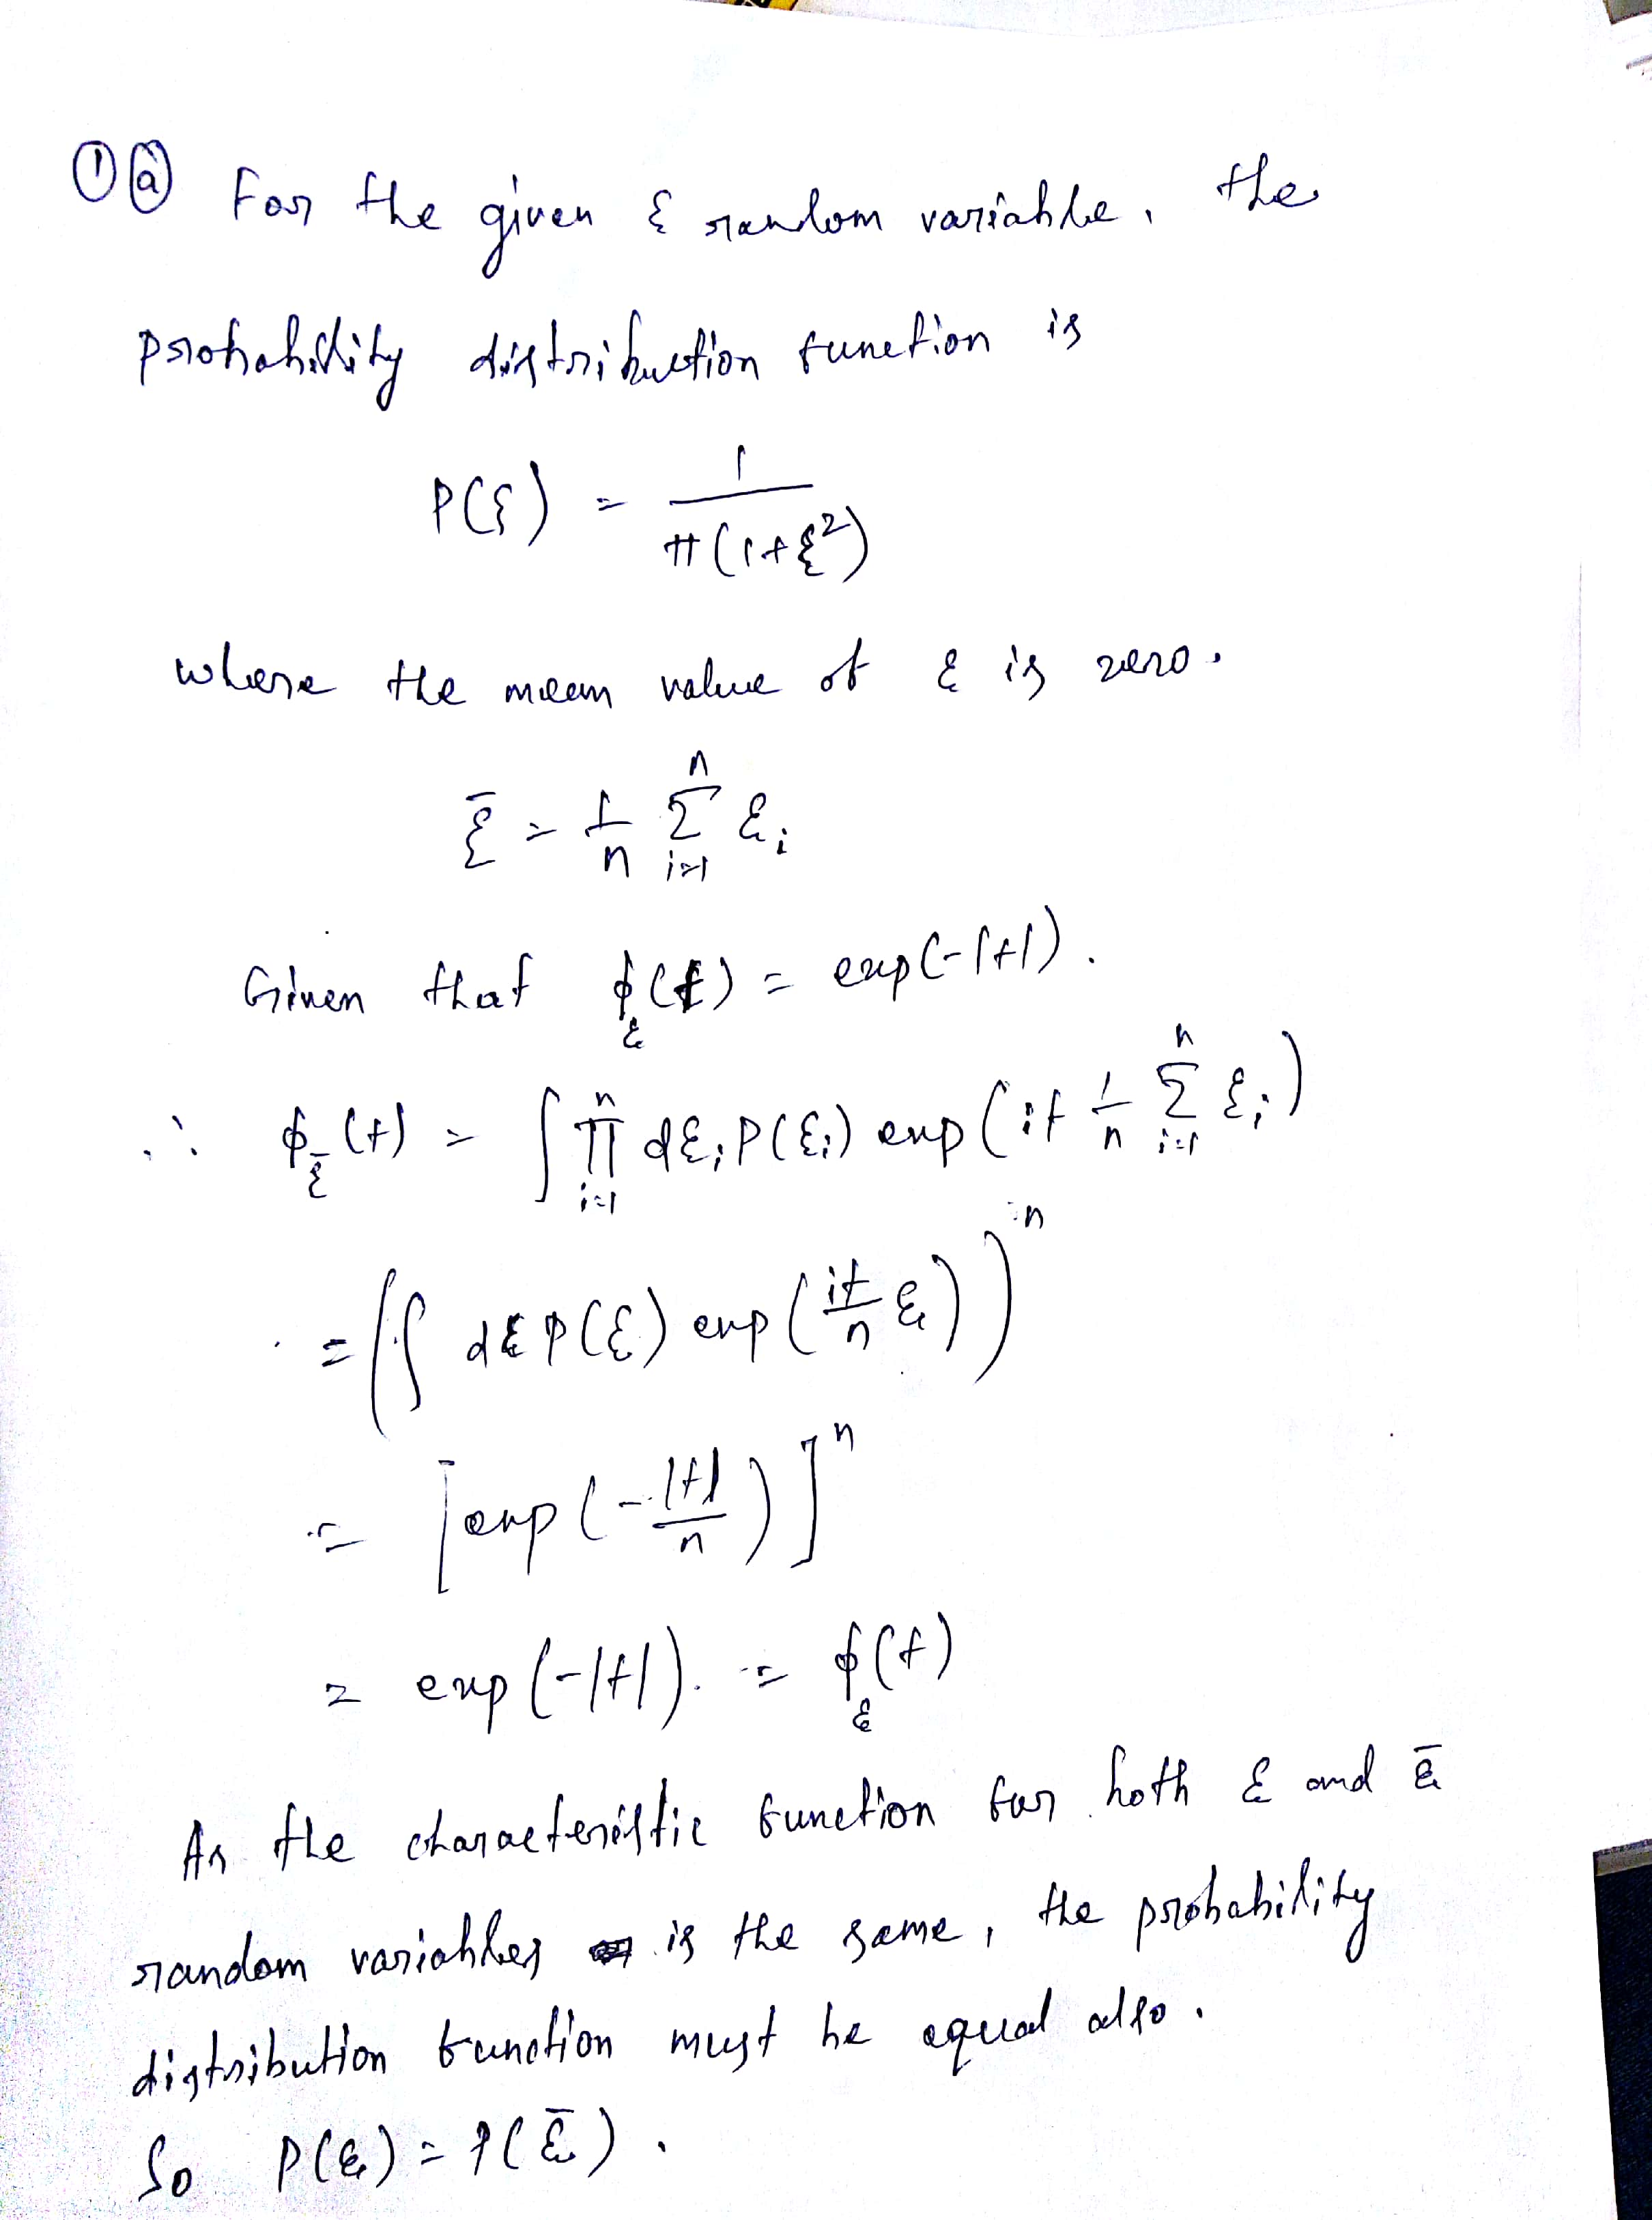 ① ⓐ For the given ξ random variable, the
probability distribution function is
P(ξ) = 1/π(1+ξ²)
where the mean value of ξ is zero.
ξ̄ = 1/n Σ_{i=1}^{n} ξ_i
Given that ϕ_ξ(t) = exp(-|t|).
∴ ϕ_ξ̄(t) = ∫ ∏_{i=1}^{n} dξ_i P(ξ_i) exp(it 1/n Σ_{i=1}^{n} ξ_i)
= (∫ dξ P(ξ) exp(it/n ξ))^n
= [exp(-|t|/n)]^n
= exp(-|t|). = ϕ_ξ(t)
As the characteristic function for both ξ and ξ̄
random variables is the same, the probability
distribution function must be equal also.
So P(ξ) = P(ξ̄).